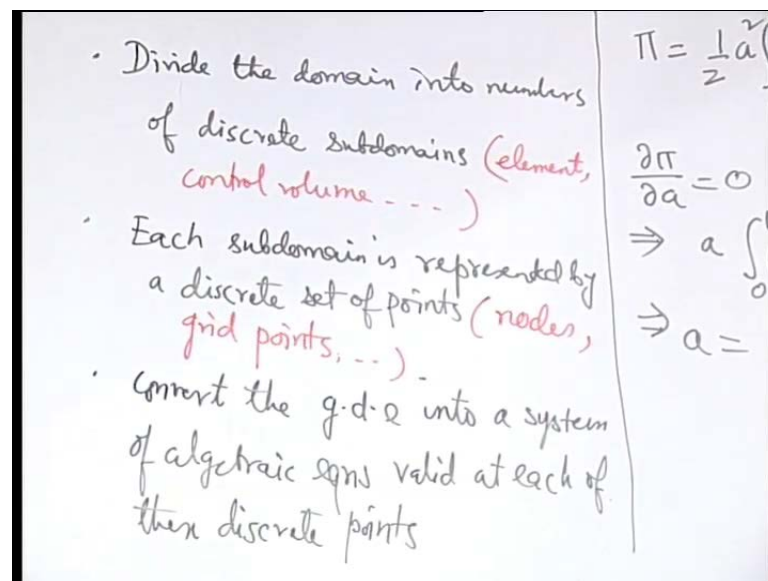 · Divide the domain into numbers
of discrete subdomains (element,
control volume - - - -)
· Each subdomain is represented by
a discrete set of points (nodes,
grid points, ...) -
· Convert the g.d.e into a system
of algebraic eqns valid at each of
these discrete points
Π = 1/2 a² (
∂π/∂a = 0
⇒ a ∫₀
⇒ a =